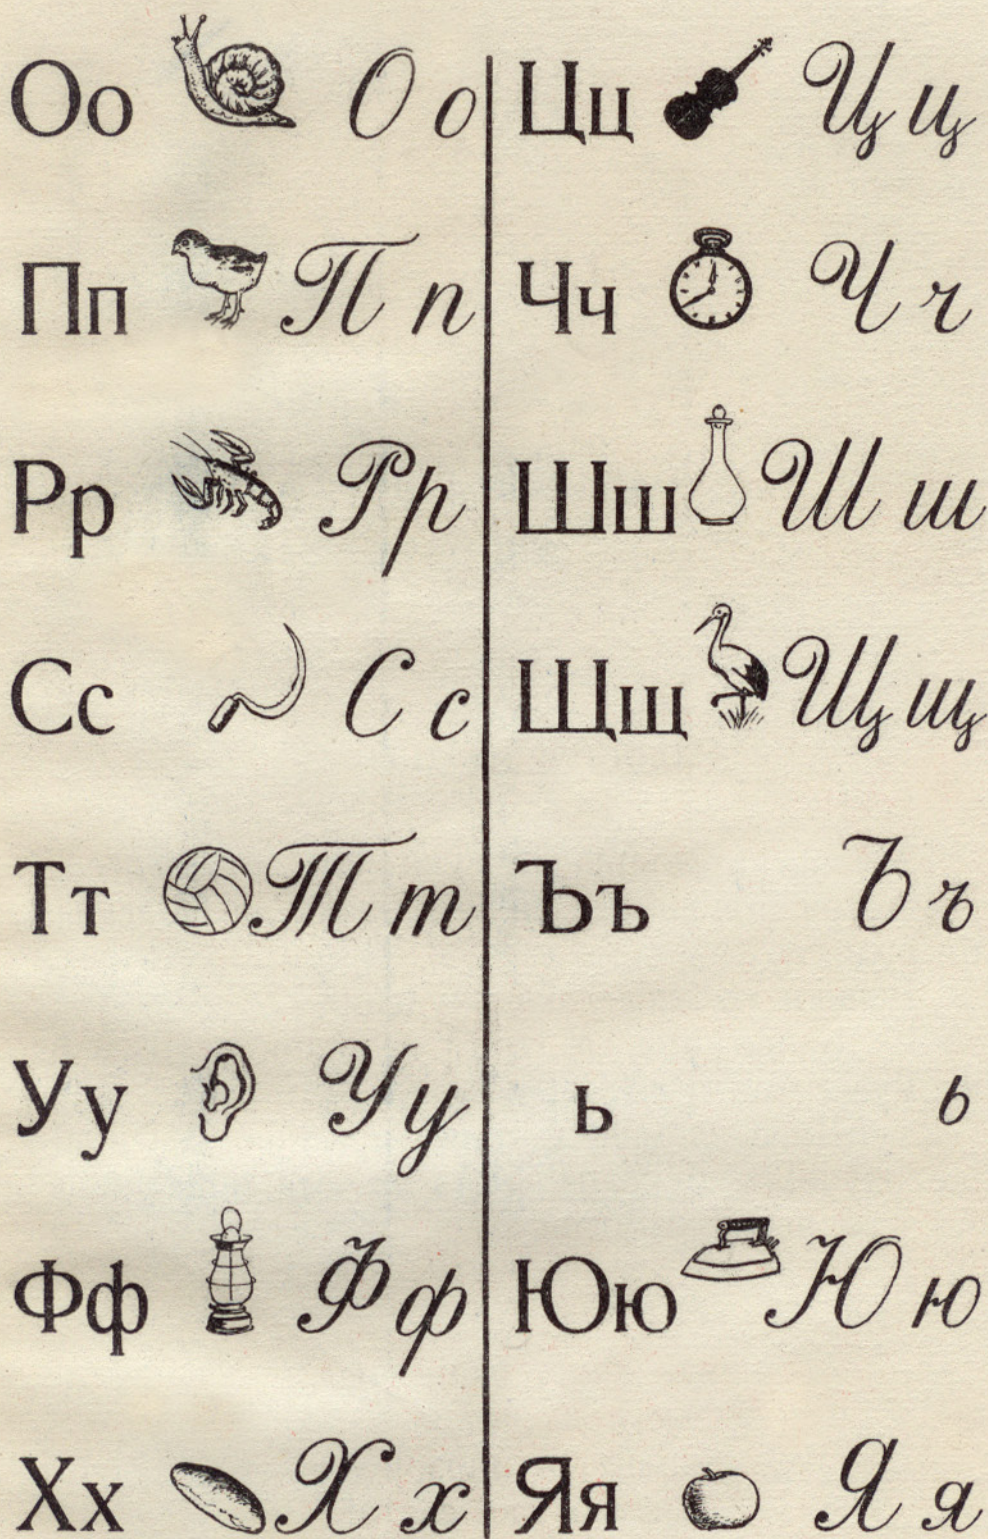 Оо О о
Пп П п
Рр Р р
Сс С с
Тт Т т
Уу У у
Фф Ф ф
Хх Х х
Цц Ц ц
Чч Ч ч
Шш Ш ш
Щщ Щ щ
Ъъ Ъ ъ
ь ь
Юю Ю ю
Яя Я я